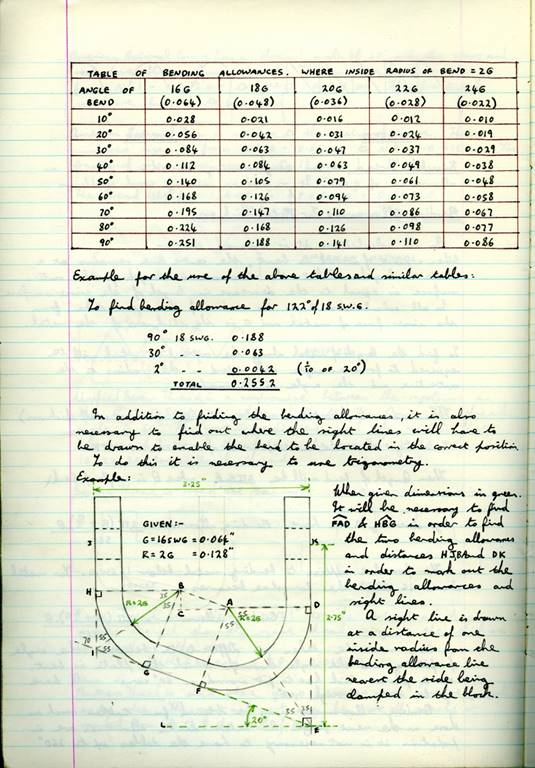 TABLE OF BENDING ALLOWANCES. WHERE INSIDE RADIUS OF BEND = 2G
ANGLE OF BEND 16G (0.064) 18G (0.048) 20G (0.036) 22G (0.028) 24G (0.022)
10° 0.028 0.021 0.016 0.012 0.010
20° 0.056 0.042 0.031 0.024 0.019
30° 0.084 0.063 0.047 0.037 0.029
40° 0.112 0.084 0.063 0.049 0.038
50° 0.140 0.105 0.079 0.061 0.048
60° 0.168 0.126 0.094 0.073 0.058
70° 0.195 0.147 0.110 0.086 0.067
80° 0.224 0.168 0.126 0.098 0.077
90° 0.251 0.188 0.141 0.110 0.086
Example for the use of the above tables and similar tables:
To find bending allowance for 122° of 18 S.W.G.
90° 18 SWG. 0.188
30° - - 0.063
2° - - 0.0042 (1/10 OF 20°)
TOTAL 0.2552
In addition to finding the bending allowances, it is also
necessary to find out where the sight lines will have to
be drawn to enable the bend to be located in the correct position
To do this it is necessary to use trigonometry.
Example:
2.25"
GIVEN:-
G=16SWG = 0.064"
R=2G = 0.128"
J
K
H
B
R=2G
35
35
C
A
D
55
R=2G
55
2.75"
70
55
55
I
G
F
L
20°
35
25
E
When given dimensions in green.
It will be necessary to find
FAD & HBG in order to find
the two bending allowances
and distances HJ, BA and DK
in order to mark out the
bending allowances and
sight lines.
A sight line is drawn
at a distance of one
inside radius from the
bending allowance line
nearest the side being
clamped in the block.